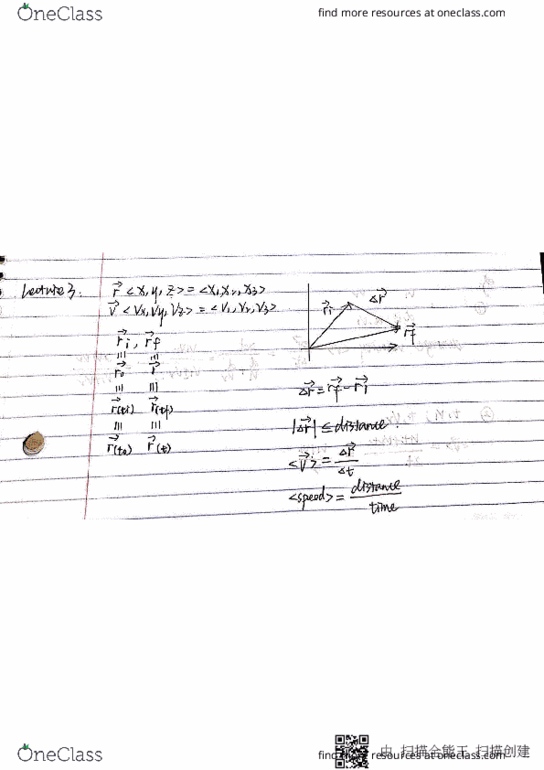 OneClass
find more resources at oneclass.com
Lecture 3.
r⃗ <x, y, z> = <x₁, x₂, x₃>
v⃗ <Vx, Vy, Vz> = <V₁, V₂, V₃>
r⃗i , r⃗f
≡ ≡
r⃗₀ r⃗
≡ ≡
r⃗(ti) r⃗(tf)
≡ ≡
r⃗(t₀) r⃗(t)
r⃗i Δr⃗
r⃗f
Δr⃗ = r⃗f - r⃗i
|Δr⃗| ≤ distance
<v⃗> = Δr⃗ / Δt
<speed> = distance / time
OneClass
find more resources at oneclass.com
由 扫描全能王 扫描创建